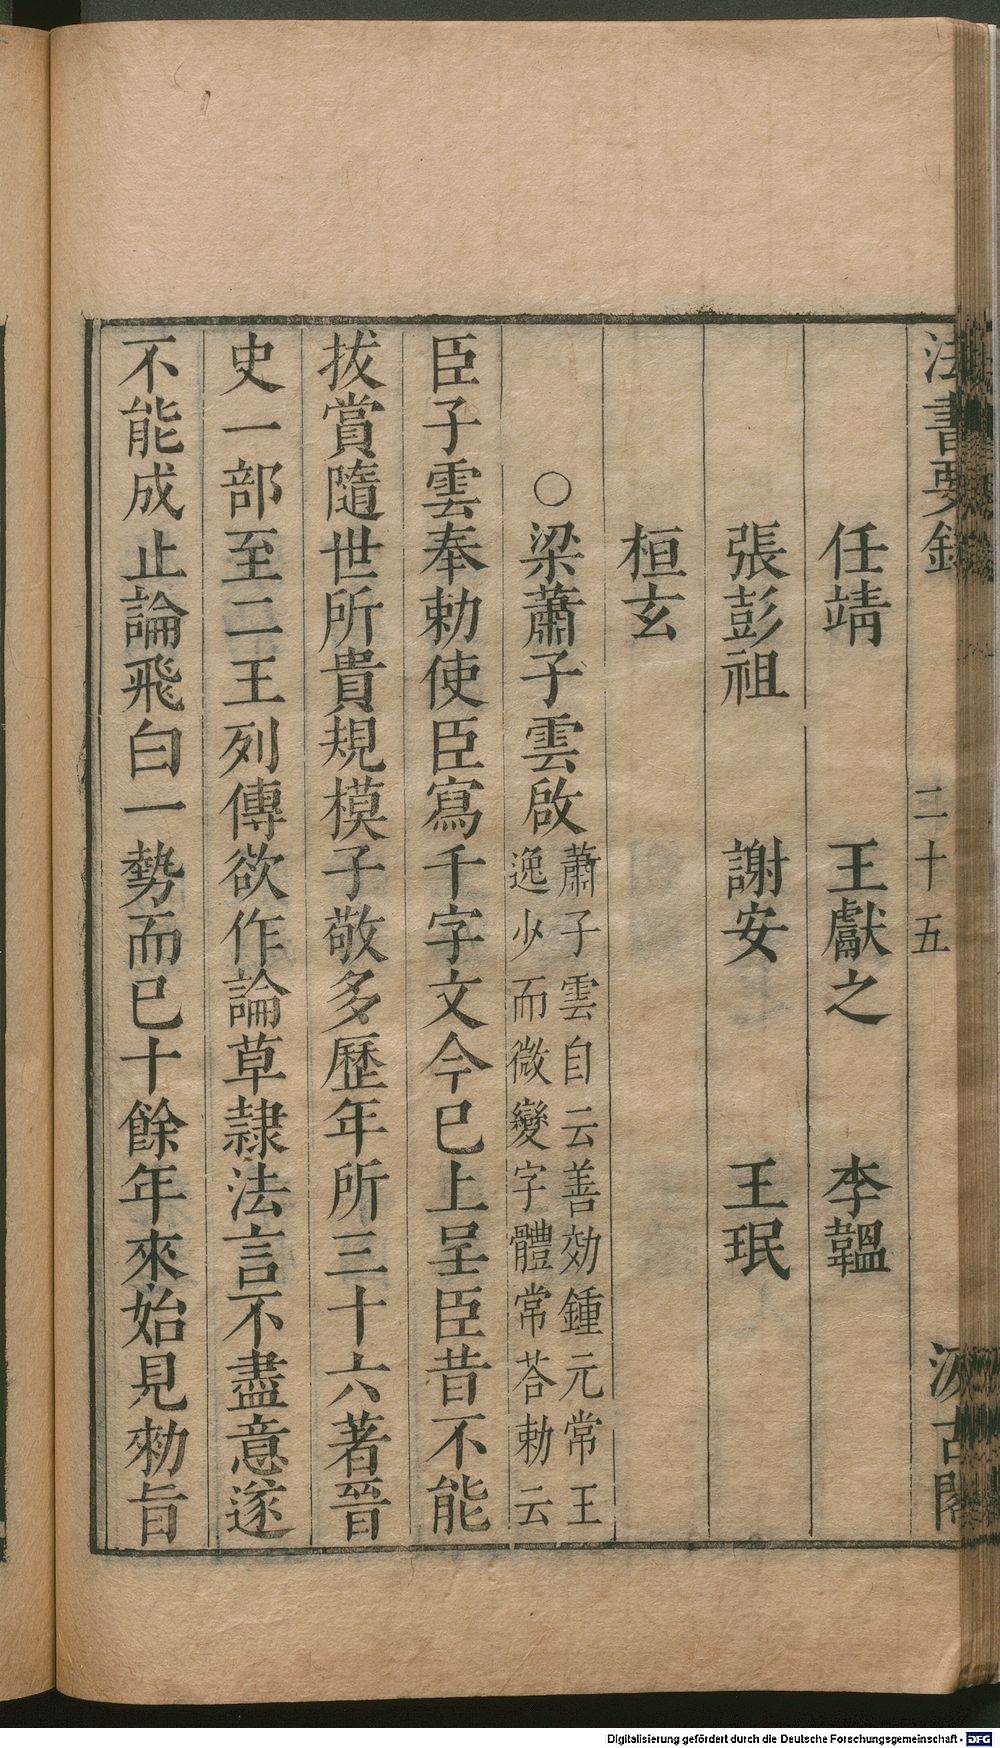 法書要錄 二十五 汲古閣
任靖 王獻之 李韞
張彭祖 謝安 王珉
桓玄
○梁蕭子雲啟 蕭子雲自云善効鍾元常王
逸少而微變字體常荅勅云
臣子雲奉勅使臣寫千字文今已上呈臣昔不能
拔賞隨世所貴規模子敬多歷年所三十六著晉
史一部至二王列傳欲作論草隷法言不盡意遂
不能成止論飛白一勢而已十餘年來始見勑旨
Digitalisierung gefördert durch die Deutsche Forschungsgemeinschaft - DFG